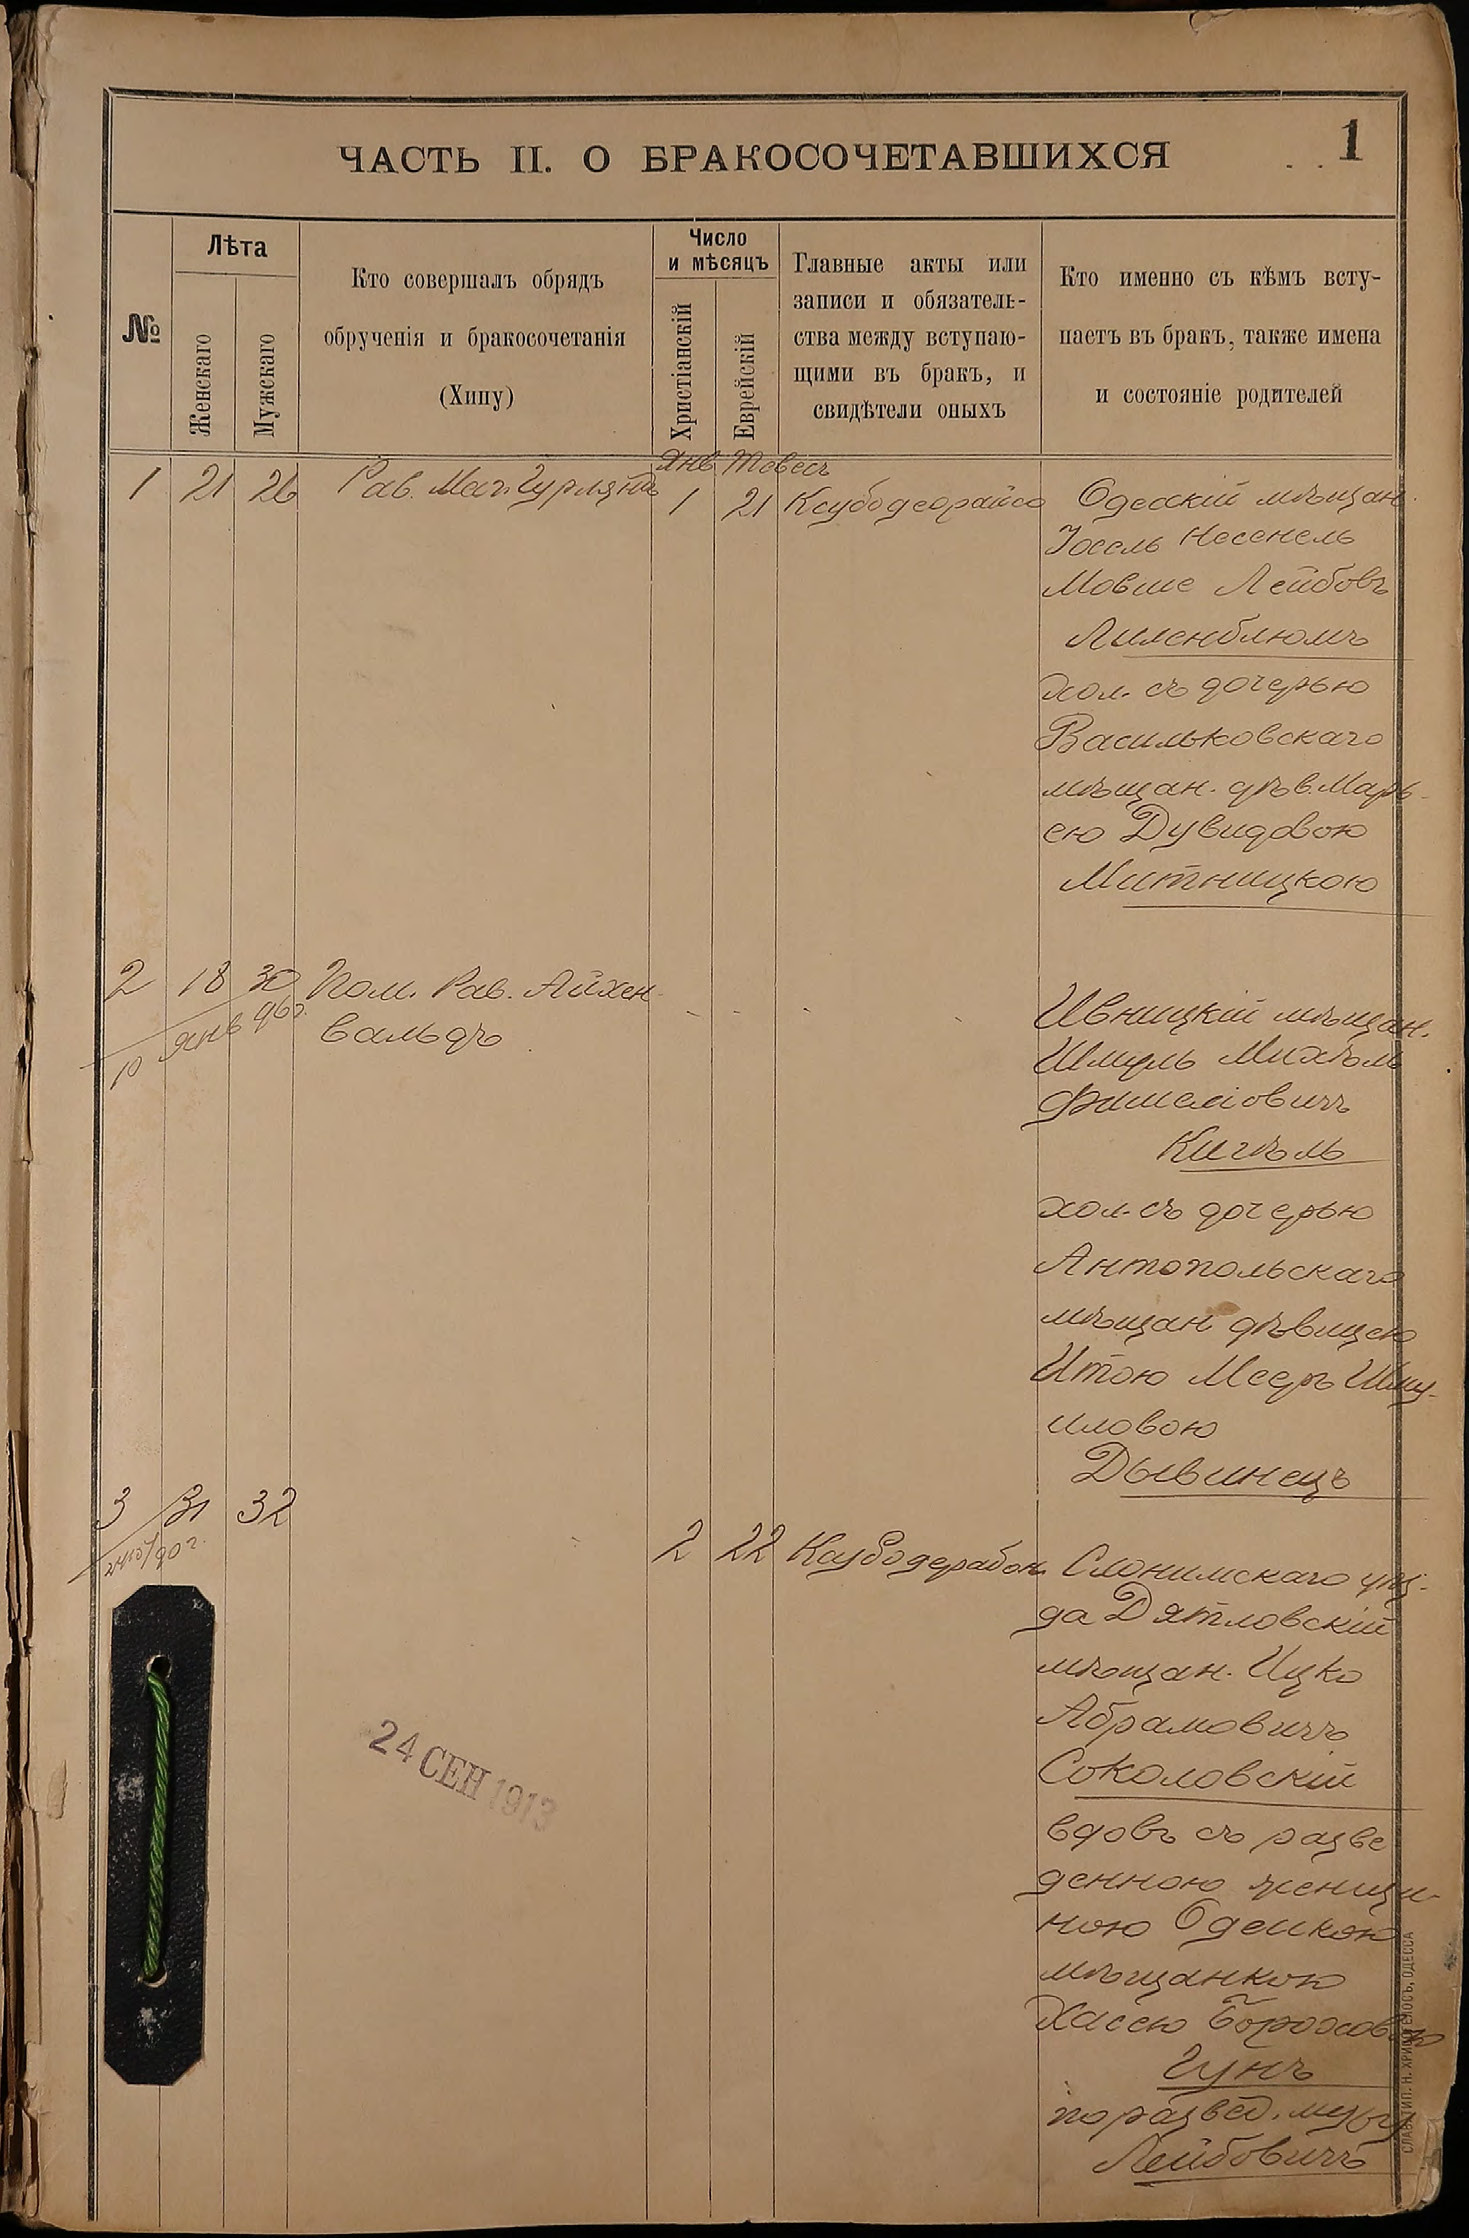 1
ЧАСТЬ II. О БРАКОСОЧЕТАВШИХСЯ
№
Лѣта
Женскаго
Мужскаго
Кто совершалъ обрядъ
обрученія и бракосочетанія
(Хипу)
Число
и мѣсяцъ
Христіанскій
Еврейскій
Главные акты или
записи и обязатель-
ства между вступаю-
щими въ бракъ, и
свидѣтели оныхъ
Кто именно съ кѣмъ всту-
паетъ въ бракъ, также имена
и состояніе родителей
Янв Тевесъ
1 21 26 Рав. Мог. Гурляндъ 1 21 Ксубодеорайсо
Одесскій мѣщан.
Іосель Несенель
Мовше Лейбовъ
Лиленблюмъ
хол. съ дочерью
Васильковскаго
мѣщан. дѣв. Марь-
ею Дувидовою
Митницкою
2 18 30 Пом. Рав. Айхен-
вальдъ
10 янв 96г.
Ивницкій мѣщан.
Шмуль Михель
Фишелiовичъ
Кигель
хол. съ дочерью
Антопольскаго
мѣщан дѣвицею
Итою Мееръ Шму-
иловою
Дывинецъ
3 31 32
2 22 Ксубодерабон.
Слонимскаго уѣз-
да Дятловскій
мѣщан. Ицко
Абрамовичъ
Соколовскій
вдовъ съ разве
денною женщи-
ною Одесскою
мѣщанкою
Хасею Борохов
Гунъ
по развед. мужу
Лейбовичъ
24 СЕН 1913
СЛАВ. ТИП. Н. ХРИСОГЕЛОСЪ, ОДЕССА